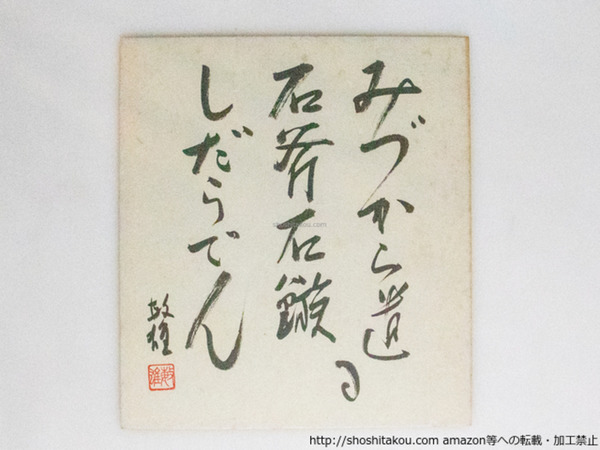 みづから遺る
石斧石鏃
しだらでん
敏雄
shoshitakou.com
http://shoshitakou.com amazon等への転載・加工禁止